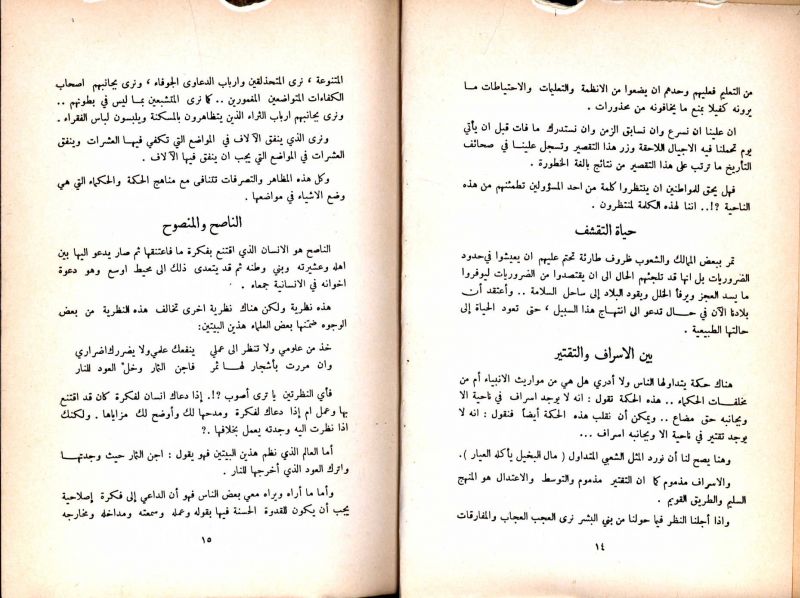 من التعليم فعليهم وحدهم ان يضعوا من الانظمة والتعليمات والاحتياطات مـا
يرونه كفيلا بمنع ما يخافونه من محذورات .
ان علينا ان نسرع وان نسابق الزمن وان نستدرك ما فات قبل ان يأتي
يوم تحملنا فيه الاجيال اللاحقة وزر هذا التقصير وتسجل علينـا في صحائف
التأريخ ما ترتب على هذا التقصير من نتائج بالغة الخطورة .
فهل يحق للمواطنين ان ينتظروا كلمة من احد المسؤولين تطمئنهم من هذه
الناحية ?!.. اننا لهذه الكلمة لمنتظرون .
حياة التقشف
تمر ببعض الممالك والشعوب ظروف طارئة تحتم عليهم ان يعيشوا في حدود
الضروريات بل انها قد تلجئهم الحال الى ان يقتصدوا من الضروريات ليوفروا
ما يسد العجز ويرفأ الخلل ويقود البلاد إلى ساحل السلامة .. وأعتقد أن
بلادنا الآن في حـال تدعو الى انتهاج هذا السبيل ، حتى تعود الحياة إلى
حالتها الطبيعية .
بين الاسراف والتقتير
هناك حكمة يتداولها الناس ولا أدري هل هي من مواريث الانبياء أم من
مخلفات الحكماء .. هذه الحكمة تقول : انه لا يوجد اسراف في ناحية الا
وبجانبه حق مضاع .. ويمكن أن نقلب هذه الحكمة أيضاً فنقول : انه لا
يوجد تقتير في ناحية الا وبجانبه اسراف ...
وهنا يصح لنا أن نورد المثل الشعبي المتداول ( مال البخيل يأكله العيار ).
والاسراف مذموم كما ان التقتير مذموم والتوسط والاعتدال هو المنهج
السليم والطريق القويم .
واذا أجلنا النظر فيما حولنا من بني البشر نرى العجب العجاب والمفارقات
١٤
المتنوعة ، نرى المتحذلقين وارباب الدعاوى الجوفاء ، ونرى بجانبهم اصحاب
الكفاءات المتواضعين المغمورين .. كما نرى المتشبعين بمـا ليس في بطونهم ..
ونرى بجانبهم ارباب الثراء الذين يتظاهرون بالمسكنة ويلبسون لباس الفقراء .
ونرى الذي ينفق الآلاف في المواضع التي تكفي فيهـا العشرات وينفق
العشرات في المواضع التي يجب ان ينفق فيها الآلاف .
وكل هذه المظاهر والتصرفات تتنافى مع مناهج الحكمة والحكماء التي هي
وضع الاشياء في مواضعها .
الناصح والمنصوح
الناصح هو الانسان الذي اقتنع بفكرة ما فاعتنقها ثم صار يدعو اليها بين
اهله وعشيرته وبني وطنه ثم قد يتعدى ذلك الى محيط اوسع وهو دعوة
اخوانه في الانسانية جمعاء .
هذه نظرية ولكن هناك نظرية اخرى تخالف هذه النظرية من بعض
الوجوه ضمّنها بعض العلماء هذين البيتين:
خذ من علومي ولا تنظر الى عملي ينفعك علمي ولا يضررك اضراري
وان مررت بأشجار لها ثمر فاجن الثمار وخل العود للنار
فأي النظرتين يا ترى أصوب ?!. إذا دعاك انسان لفكرة كان قد اقتنع
بها وعمل ام إذا دعاك لفكرة ومدحها لك وأوضح لك مزاياها . ولكنك
اذا نظرت اليه وجدته يعمل بخلافها .?
أما العالم الذي نظم هذين البيتين فهو يقول : اجن الثمار حيث وجدتهـا
واترك العود الذي أخرجها للنار .
وأما ما أراه ويراه معي بعض الناس فهو أن الداعي إلى فكرة إصلاحية
يجب أن يكون للقدوة الحسنة فيها بقوله وعمله وسمعته ومداخله ومخارجه
١٥